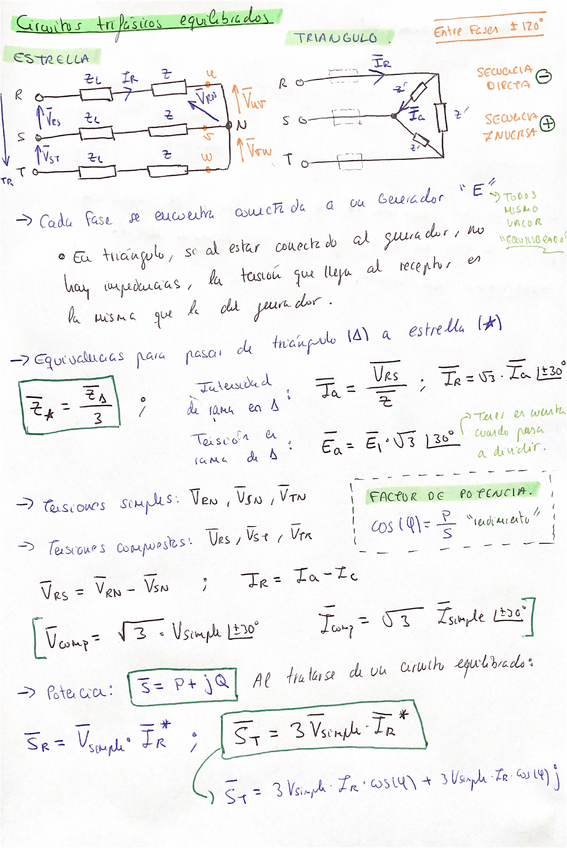 Circuitos trifásicos equilibrados
Entre Fases ± 120°
ESTRELLA
TRIANGULO.
R ZL IR Z u
VRS VRN VUV
S ZL Z S N
VST VSW
T ZL Z W
TR
R IR
S Z' Ia Z'
T Z'
SECUENCIA DIRECTA ⊖
SECUENCIA INVERSA ⊕
→ Cada fase se encuentra conectada a un Generador "E"
→ TODOS MISMO VALOR "EQUILIBRADO"
• En triángulo, si al estar conectado al generador, no
hay impedancias, la tensión que llega al receptor es
la misma que la del generador.
→ Equivalencias para pasar de triángulo (Δ) a estrella (*)
Z* = ZΔ/3 ;
Intensidad de rama en Δ : Ia = VRS/Z ; IR = √3 · Ia |±30°
Tensión en rama de Δ : Ea = E1 · √3 |30°
→ Tener en cuenta cuando pasa a dividir.
→ Tensiones simples: VRN, VSN, VTN
→ Tensiones compuestas: VRS, VSt, VTR
FACTOR DE POTENCIA.
cos(φ) = P/S "rendimiento"
VRS = VRN - VSN ; IR = Ia - Ic
[Vcomp = √3 · Vsimple |±30° Icomp = √3 Isimple |±30°]
→ Potencia: S = P + jQ Al tratarse de un circuito equilibrado:
SR = Vsimple · IR* ; ST = 3 Vsimple · IR*
ST = 3 Vsimple · IR · cos(φ) + 3 Vsimple · IR · cos(φ) j